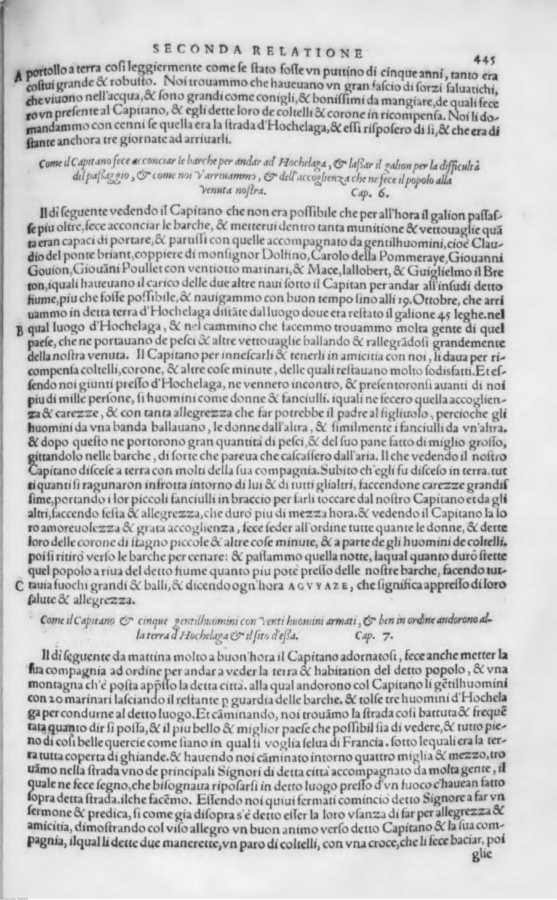 SECONDA RELATIONE
445
A portollo a terra cosi leggiermente come se stato fosse vn puttino di cinque anni, tanto era
costui grande & robusto. Noi trouammo che haueuano vn gran fascio di sorzi saluatichi,
che viuono nell'acqua, & sono grandi come conigli, & bonissimi da mangiare, de quali fece
ro vn presente al Capitano, & egli dette loro de coltelli & corone in ricompensa. Noi li do-
mandammo con cenni se quella era la strada d'Hochelaga, & essi risposero di si, & che era di
stante anchora tre giornate ad arriuarli.
Come il Capitano fece acconciar le barche per andar ad Hochelaga, & lassar il galion per la difficultà
del passaggio, & come noi v'arriuammo, & dell'accoglienza che ne fece il popolo alla
venuta nostra. Cap. 6.
Il di seguente vedendo il Capitano che non era possibile che per all'hora il galion passas-
se piu oltre, fece acconciar le barche, & metterui dentro tanta munitione & vettouaglie quā
ta eran capaci di portare, & partissi con quelle accompagnato da gentilhuomini, cioè Clau-
dio del ponte briant, coppiere di monsignor Dolfino, Carolo della Pommeraye, Giouanni
Gouion, Giouāni Poullet con ventiotto marinari, & Mace, Iallobert, & Guiglielmo il Bre
ton, iquali haueuano il carico delle due altre naui sotto il Capitan per andar all'insudi detto
fiume, piu che fosse possibile, & nauigammo con buon tempo fino alli 19. Ottobre, che arri
uammo in detta terra d'Hochelaga distāte dal luogo doue era restato il galione 45 leghe. nel
B qual luogo d'Hochelaga, & nel cammino che facemmo trouammo molta gente di quel
paese, che ne portauano de pesci & altre vettouaglie ballando & rallegrādosi grandemente
della nostra venuta. Il Capitano per innescarli & tenerli in amicitia con noi, li daua per ri-
compensa coltelli, corone, & altre cose minute, delle quali restauano molto sodisfatti. Et es-
sendo noi giunti presso d'Hochelaga, ne vennero incontro, & presentoronsi auanti di noi
piu di mille persone, si huomini come donne & fanciulli. iquali ne fecero quella accoglien-
za & carezze, & con tanta allegrezza che far potrebbe il padre al figliuolo, percioche gli
huomini da vna banda ballauano, le donne dall'altra, & similmente i fanciulli da vn'altra.
& dopo questo ne portorono gran quantità di pesci, & del suo pane fatto di miglio grosso,
gittandolo nelle barche, di sorte che pareua che cascassero dall'aria. Il che vedendo il nostro
Capitano discese a terra con molti della sua compagnia. Subito ch'egli fu disceso in terra. tut
ti quanti si ragunaron in frotta intorno di lui & di tutti gli altri, faccendone carezze grandis
sime, portando i lor piccoli fanciulli in braccio per farli toccare dal nostro Capitano et da gli
altri, faccendo festa & allegrezza, che durò piu di mezza hora. & vedendo il Capitano la lo
ro amoreuolezza & grata accoglienza, fece seder all'ordine tutte quante le donne, & dette
loro delle corone di stagno piccole & altre cose minute, & a parte de gli huomini de coltelli.
poi si ritirò verso le barche per cenare: & passammo quella notte, laqual quanto durò stette
quel popolo a riua del detto fiume quanto piu potè presso delle nostre barche, facendo tut-
C tauia fuochi grandi & balli, & dicendo ogn'hora AGVYAZE, che significa appresso di loro
salute & allegrezza.
Come il Capitano & cinque gentilhuomini con venti huomini armati, & ben in ordine andorono al-
la terra d'Hochelaga & il sito d'essa. Cap. 7.
Il di seguente da mattina molto a buon'hora il Capitano adornatosi, fece anche metter la
sua compagnia ad ordine per andar a veder la terra & habitation del detto popolo, & vna
montagna ch'è posta app̄sso la detta città. alla qual andorono col Capitano li gētilhuomini
con 20 marinari lasciando il restante p guardia delle barche. & tolse tre huomini d'Hochela
ga per condurne al detto luogo. Et cāminando, noi trouāmo la strada cosi battuta & frequē
tata quanto dir si possa, & il piu bello & miglior paese che possibil sia di vedere, & tutto pie-
no di cosi belle quercie come siano in qual si voglia selua di Francia. sotto lequali era la ter-
ra tutta coperta di ghiande. & hauendo noi cāminato intorno quattro miglia & mezzo, tro
uāmo nella strada vno de principali Signori di detta città accompagnato da molta gente, il
quale ne fece segno, che bisognaua riposarsi in detto luogo presso d'vn fuoco c'haueān fatto
sopra detta strada. ilche facēmo. Essendo noi quiui fermati cominciò detto Signore a far vn
sermone & predica, si come già disopra s'è detto esser la loro vsanza di far per allegrezza &
amicitia, dimostrando col viso allegro vn buon animo verso detto Capitano & la sua com-
pagnia, ilqual li dette due manerette, vn paro di coltelli, con vna croce, che li fece baciar, poi
glie